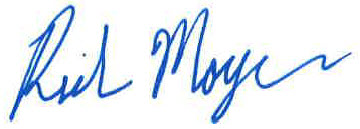 Rich Moyer